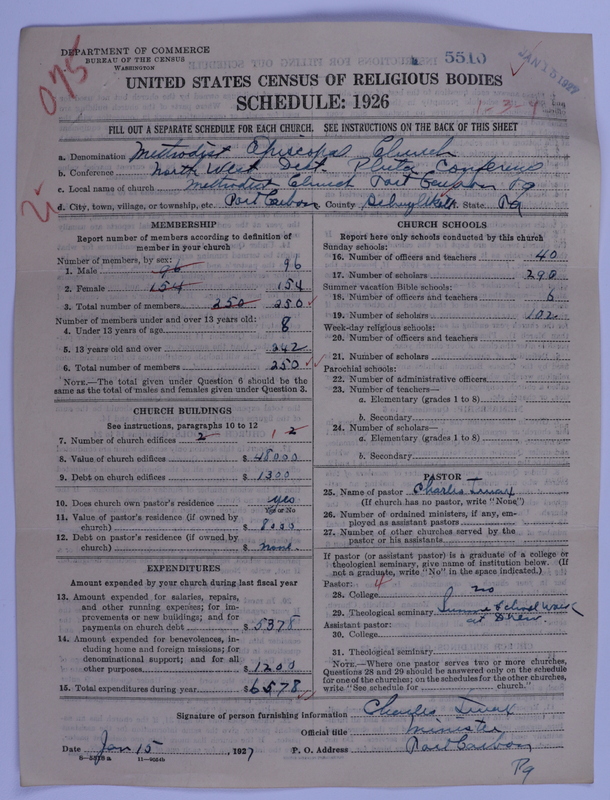 DEPARTMENT OF COMMERCE
BUREAU OF THE CENSUS
WASHINGTON
075
5510
JAN 15 1927
UNITED STATES CENSUS OF RELIGIOUS BODIES
SCHEDULE: 1926
1-3-4
FILL OUT A SEPARATE SCHEDULE FOR EACH CHURCH. SEE INSTRUCTIONS ON THE BACK OF THIS SHEET
a. Denomination Methodist Episcopal Church
b. Conference North West Dist. Phila Conference
c. Local name of church Methodist Church Port Carbon Pa
d. City, town, village, or township, etc. Port Carbon County Schuylkill State Pa
MEMBERSHIP
Report number of members according to definition of member in your church
Number of members, by sex:
1. Male 96 96
2. Female 154 154
3. Total number of members 250 250
Number of members under and over 13 years old:
4. Under 13 years of age 8
5. 13 years old and over 242
6. Total number of members 250
NOTE.—The total given under Question 6 should be the
same as the total of males and females given under Question 3.
CHURCH BUILDINGS
See instructions, paragraphs 10 to 12
7. Number of church edifices 2 1 2
8. Value of church edifices $ 48000
9. Debt on church edifices $ 1300
10. Does church own pastor's residence yes
Yes or No
11. Value of pastor's residence (if owned by
church) $ 8000
12. Debt on pastor's residence (if owned by
church) $ none
EXPENDITURES
Amount expended by your church during last fiscal year
13. Amount expended for salaries, repairs,
and other running expenses; for im-
provements or new buildings; and for
payments on church debt $ 5378
14. Amount expended for benevolences, in-
cluding home and foreign missions; for
denominational support; and for all
other purposes $ 1200
15. Total expenditures during year $ 6578
CHURCH SCHOOLS
Report here only schools conducted by this church
Sunday schools:
16. Number of officers and teachers 40
17. Number of scholars 298
Summer vacation Bible schools:
18. Number of officers and teachers 6
19. Number of scholars 102
Week-day religious schools:
20. Number of officers and teachers
21. Number of scholars
Parochial schools:
22. Number of administrative officers
23. Number of teachers—
a. Elementary (grades 1 to 8)
b. Secondary
24. Number of scholars—
a. Elementary (grades 1 to 8)
b. Secondary
PASTOR
25. Name of pastor Charles
(If church has no pastor, write "None")
26. Number of ordained ministers, if any, em-
ployed as assistant pastors
27. Number of other churches served by the
pastor or his assistants
If pastor (or assistant pastor) is a graduate of a college or
theological seminary, give name of institution below. (If
not a graduate, write "No" in the space indicated.)
Pastor: 4
28. College no
29. Theological seminary Summer School Work
at Drew
Assistant pastor:
30. College
31. Theological seminary
NOTE.—Where one pastor serves two or more churches,
Questions 28 and 29 should be answered only on the schedule
for one of the churches; on the schedules for the other churches,
write "See schedule for church."
Signature of person furnishing information Charles
Official title Minister
Date Jan 15, 1927 P. O. Address Port Carbon
Pa